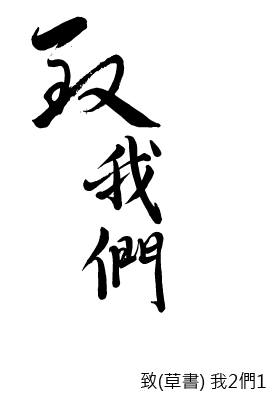 致
我
們
致(草書) 我2們1